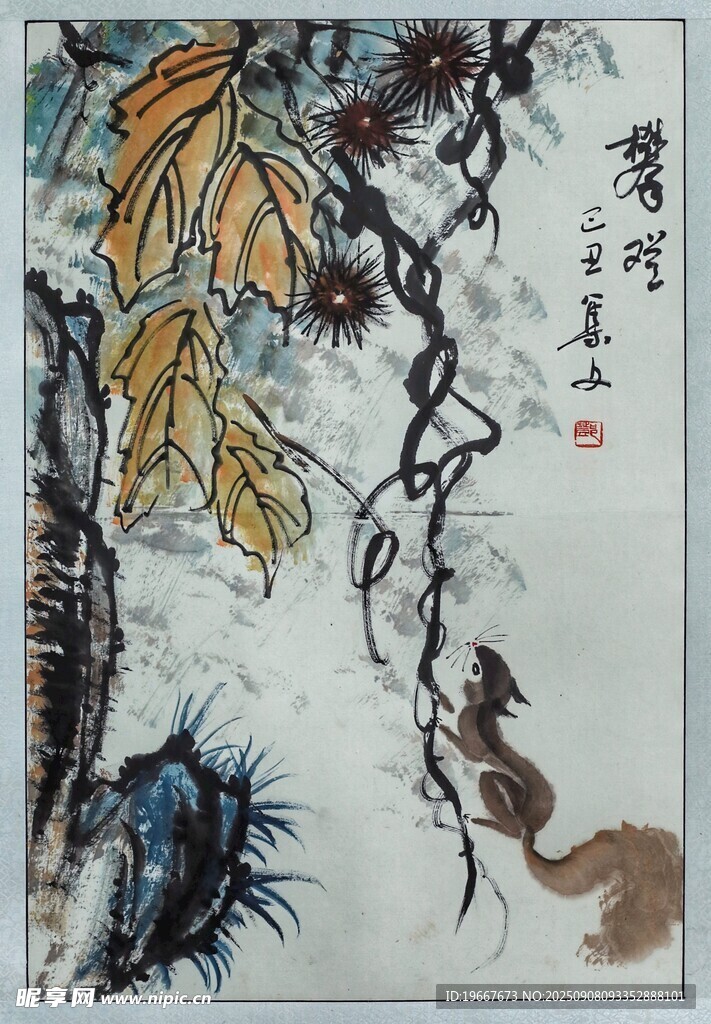 攀登
己丑 集文
昵享网 www.nipic.cn
ID:19667673 NO:20250908093352888101